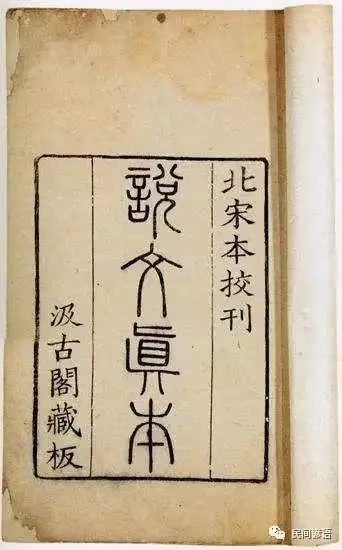 北宋本挍刊
說文真本
汲古閣藏板
民间谚语